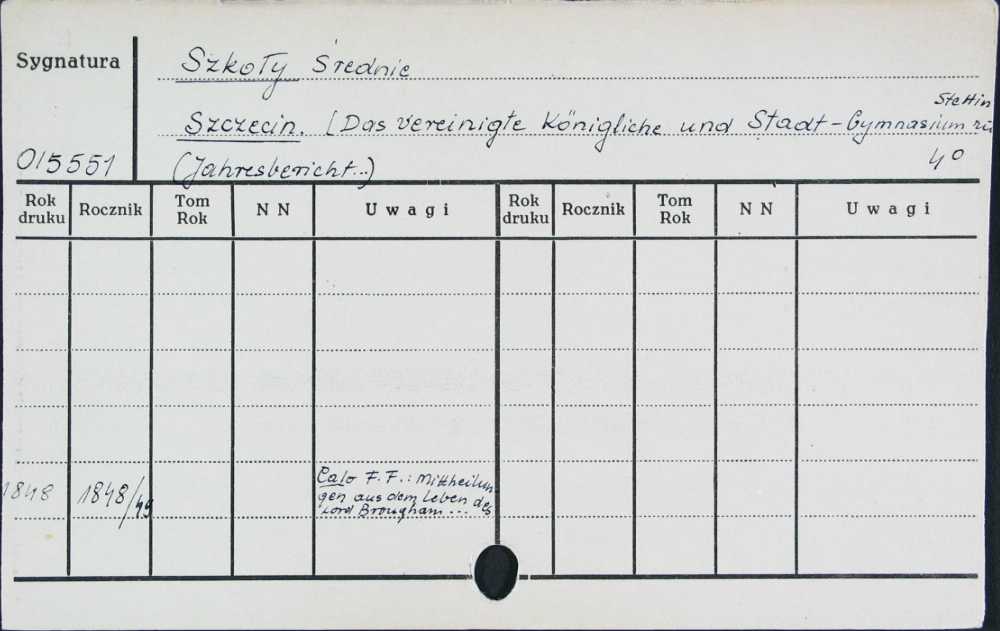 Sygnatura
Szkoły średnie
Szczecin. [Das vereinigte Königliche und Stadt-Gymnasium zu
Stettin
015551
(Jahresbericht...)
4°
Rok druku Rocznik Tom Rok NN Uwagi Rok druku Rocznik Tom Rok NN Uwagi
1848 1848/49 Calo F.F.: Mittheilun-
gen aus dem Leben des
Lord Brougham...